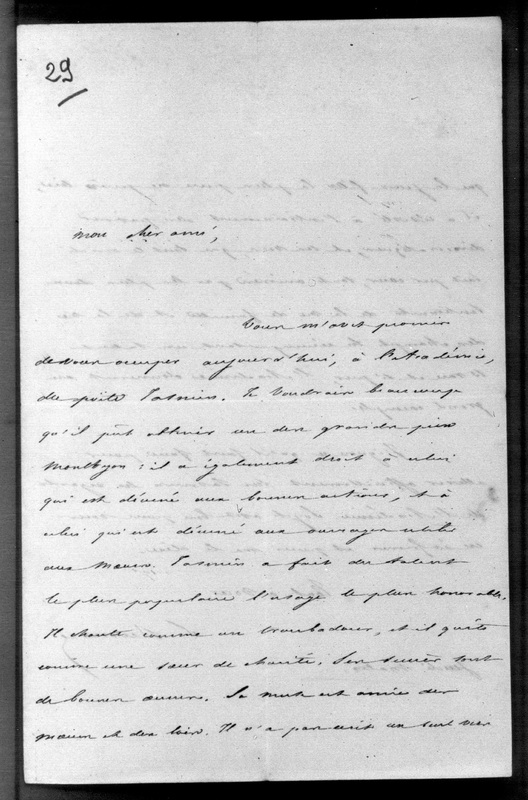 29
mon cher ami,
Vous m'avez promis
de vous occuper aujourd'hui, à l'académie,
du poëte Jasmin. Je voudrais beaucoup
qu'il pût obtenir un des grands prix
Monthyon : il a également droit à celui
qui est décerné aux bonnes actions, et à
celui qui est décerné aux ouvrages utiles
aux mœurs. Jasmin a fait du talent
le plus populaire l'usage le plus honorable.
Il chante comme un troubadour, et il quête
comme une sœur de charité. Ses succès sont
de bonnes œuvres. Sa muse est amie des
mœurs et des lois. Il n'a pas écrit un seul vers